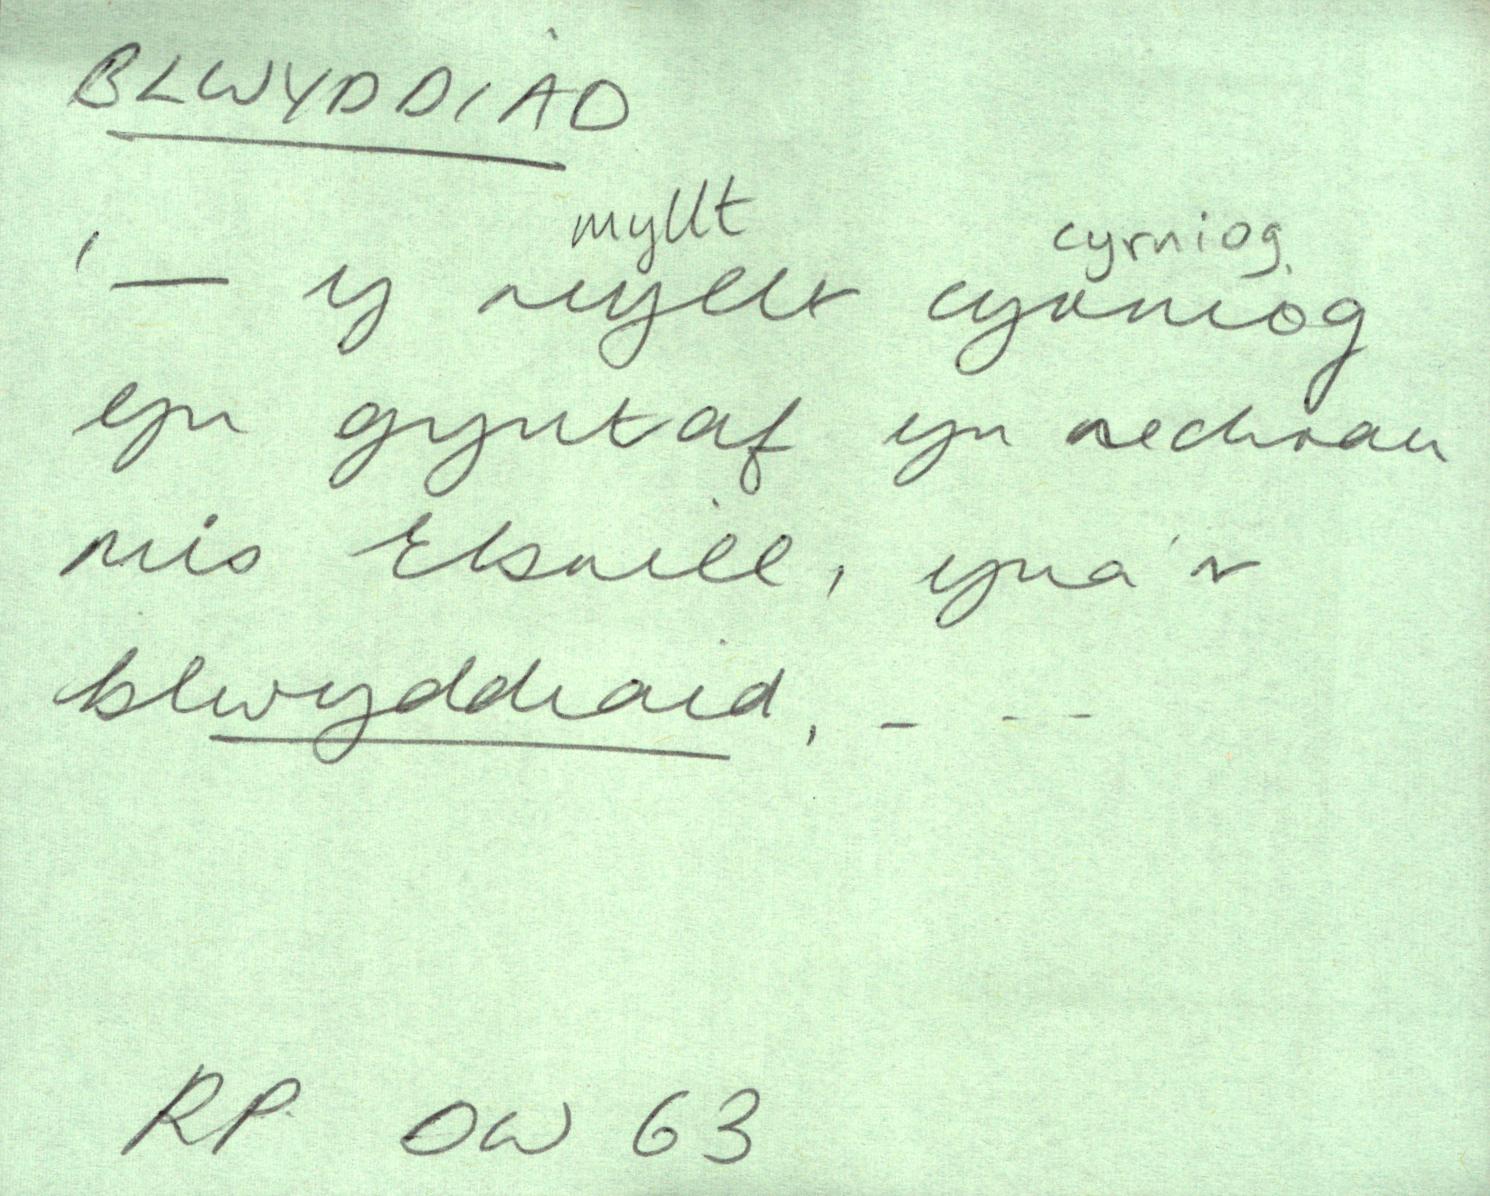 BLWYDDIAD
myllt cyrniog
'— y myllt cyrniog
yn gyntaf yn nechrau
mis Ebrill, yna'r
blwyddiaid, - - -
RP OW 63